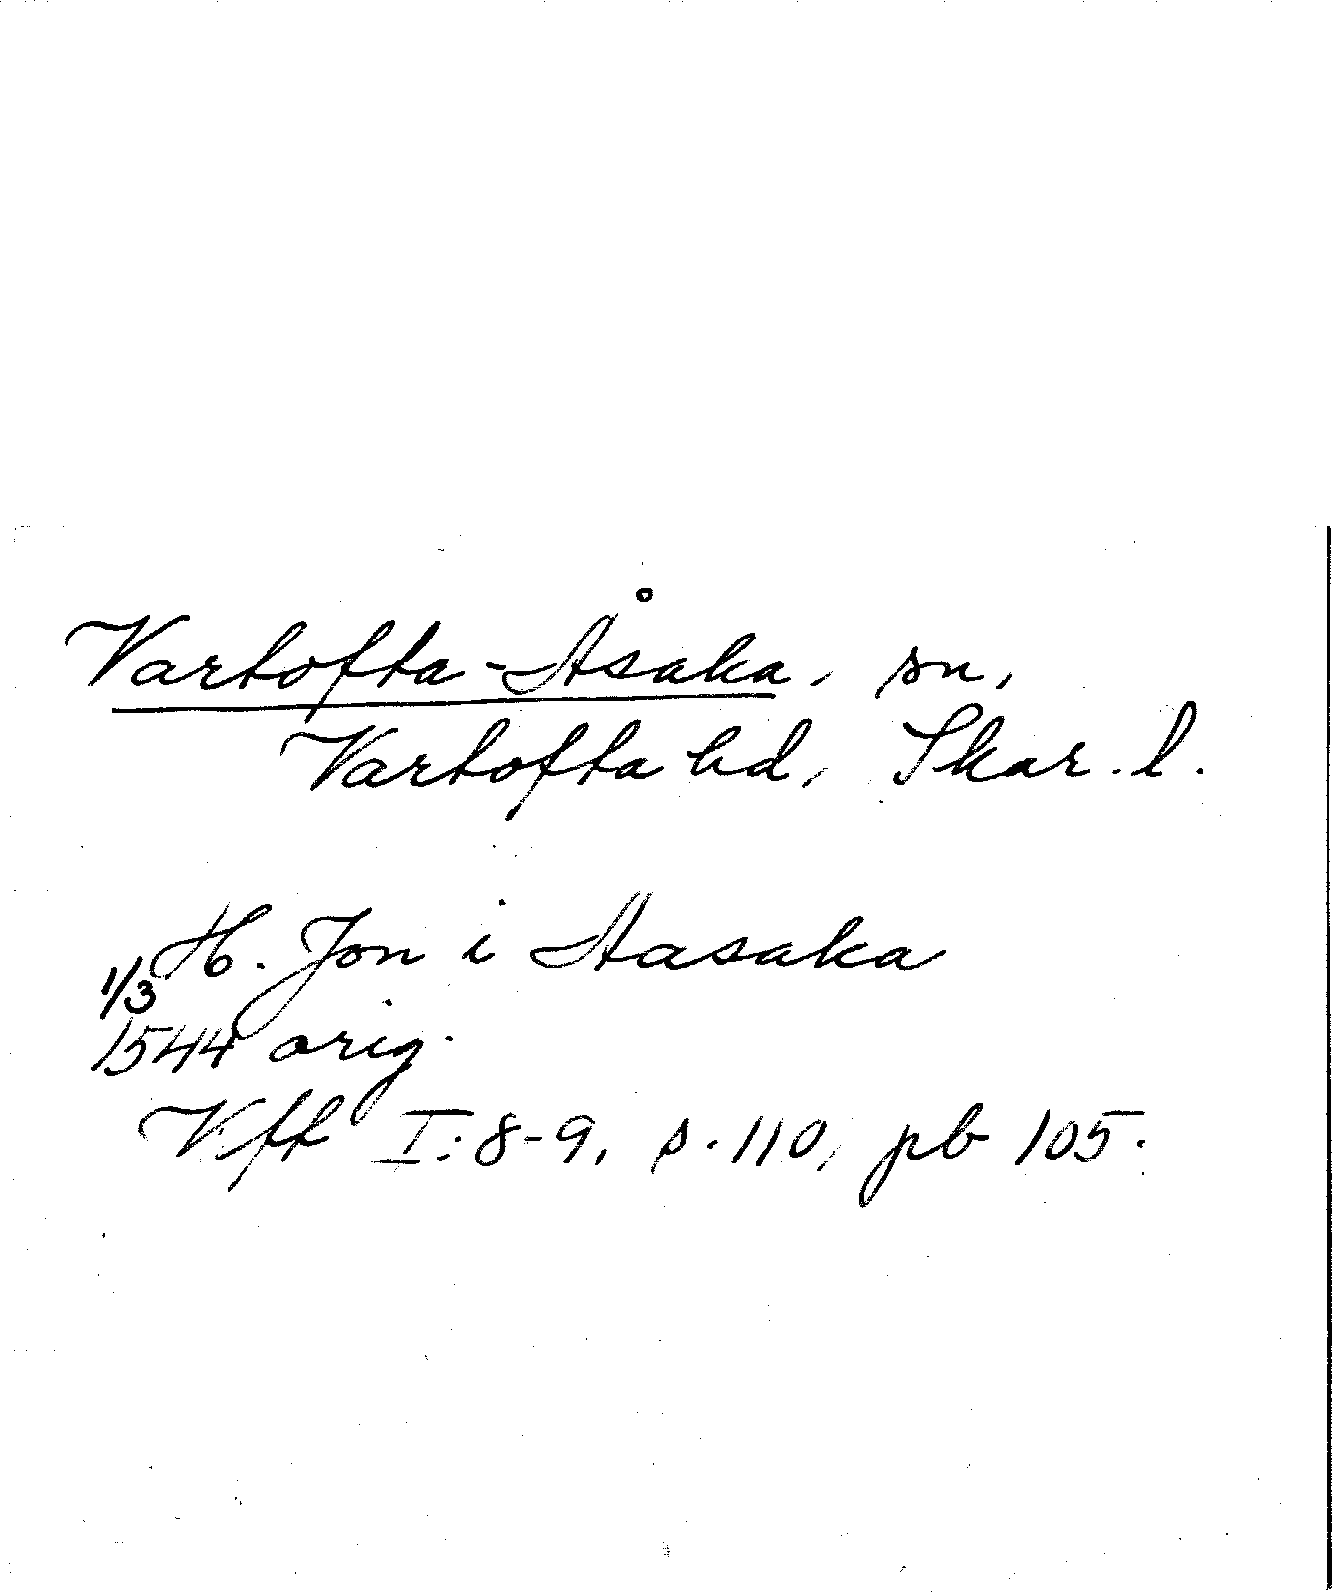 Vartofta-Åsaka, sn,
Vartofta hd, Skar. l.
H. Jon i Aasaka
1/3
1544 orig.
Vff I:8-9, s. 110, pb 105.